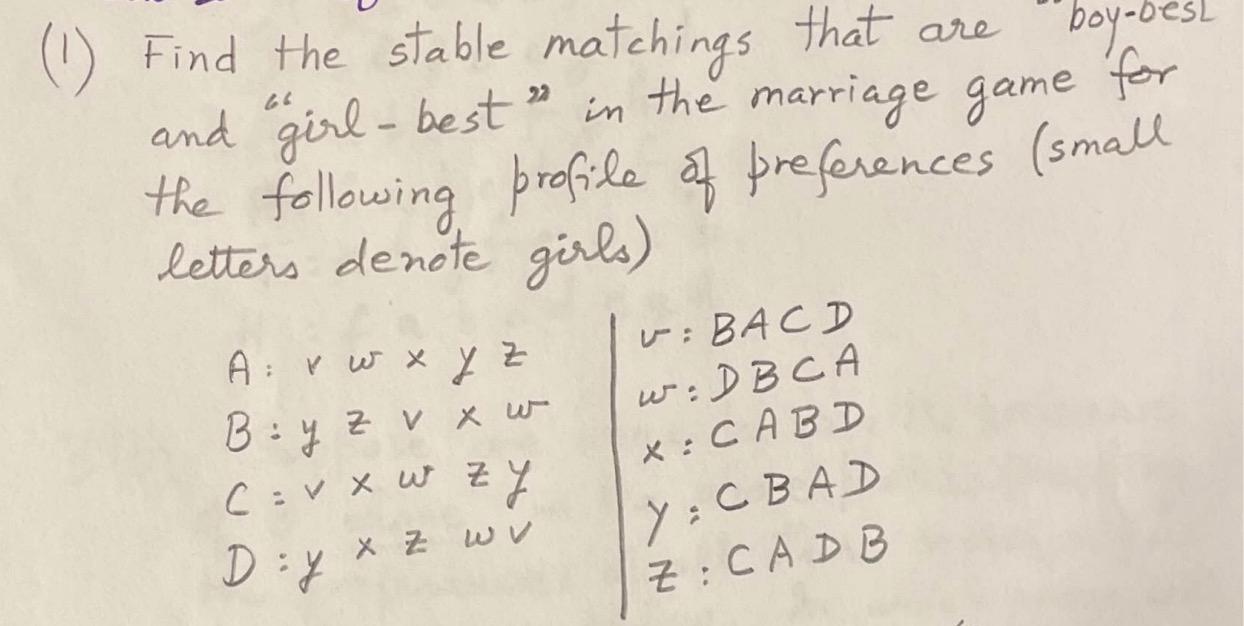 (1) Find the stable matchings that are "boy-best
and "girl-best" in the marriage game for
the following profile of preferences (small
letters denote girls)
A: v w x y z
B: y z v x w
C: v x w z y
D: y x z w v
v: B A C D
w: D B C A
x: C A B D
y: C B A D
z: C A D B